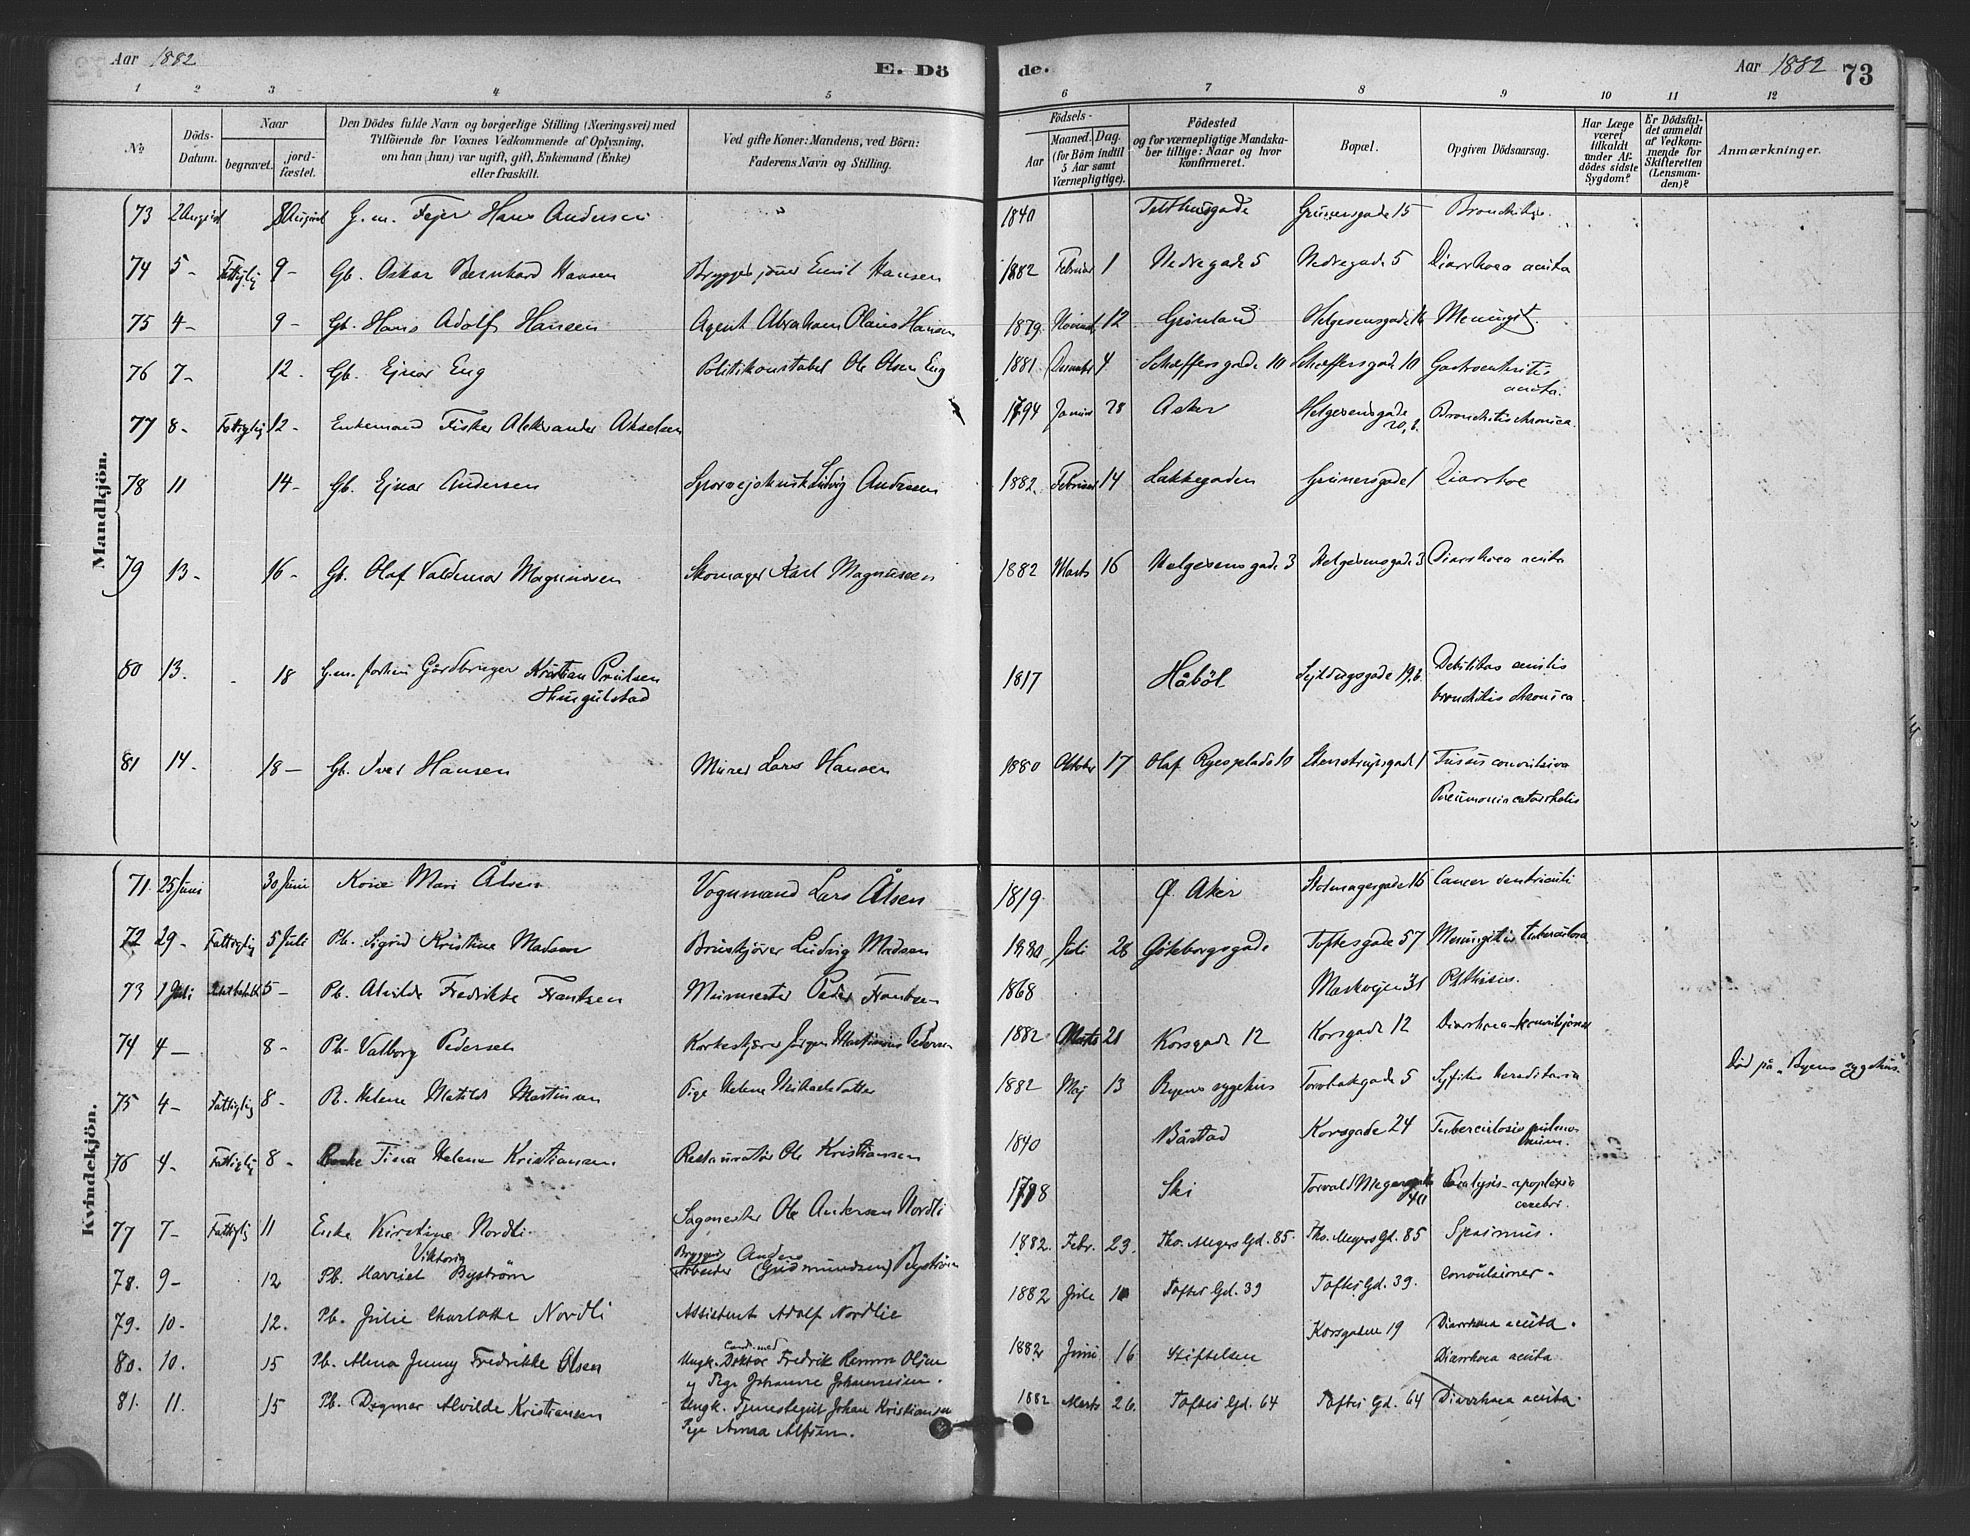 Aar 1882 E. Dö
de. Aar 1882 73
1 2 3 4 5 6 7 8 9 10 11 12
No
Döds-Datum.
Naar
begravet.
jord-fæstet.
Den Dödes fulde Navn og borgerlige Stilling (Næringsvei) med
Tilföiende for Voxnes Vedkommende af Oplysning,
om han (hun) var ugift, gift, Enkemand (Enke)
eller fraskilt.
Ved gifte Koner: Mandens, ved Börn:
Faderens Navn og Stilling.
Födsels-
Aar
Maaned. Dag.
(for Börn indtil
5 Aar samt
Værnepligtige).
Födested
og for værnepligtige Mandska-
ber tillige: Naar og hvor
Konfirmeret.
Bopæl.
Opgiven Dödsaarsag.
Har Læge
været
tilkaldt
under Af-
dödes sidste
Sygdom?
Er Dödsfal-
det anmeldt
af Vedkom-
mende for
Skifteretten
(Lensman-
den)?
Anmærkninger.
Mandkjön.
73 2 August 8 August G. m. Fejer Hans Andersen 1840 Telthusgade Grünersgade 15 Bronchitis.
74 5 - Fattiglig 9 - Gb. Oskar Bernhard Hansen Bryggesjouer Emil Hansen 1882 Februar 1 Nedregade 5 Nedregade 5 Diarrhoea acuta
75 4 - 9 - Gb. Hans Adolf Hansen Agent Abraham Olaus Hansen 1879. Novemb. 12 Grønland Helgesensgade 16 Meningit.
76 7 - 12 - Gb. Ejnar Eng Politikonstabel Ole Olsen Eng 1881 December 4 Schæffersgade 10 Schæffersgade 10 Gastroenteritis
acuta.
77 8 - Fattiglig 12 - Enkemand Fisker Aleksander Akselsen 1794 Januar 28 Asker Helgesensgade
20, Bronchitis chronica.
78 11 14 - Gb. Ejnar Andersen Sporvejskusk Ludvig Andersen 1882 Februar 14 Lakkegaden Grünersgade 1 Diarrhoe
79 13 - 16 - Gb. Olaf Valdemar Magnussen Skomager Karl Magnussen 1882 Marts 16 Helgesensgade 3 Helgesensgade 3 Diarrhoea acuta
80 13. 18 G. m. Gårdbruger Kristian Poulsen
1817 Håböl Sejldugsgade 19, b. Debilitas senilis
bronchitis chronica.
81 14. 18 - Gb. Iver Hansen Murer Lars Hansen 1880 Oktober 17 Olaf Ryesplads 10 Stenstrupsgade 1 Tussis convulsiva
Pneumonia catarrhalis
Kvindekjön.
71. 25 Juni 30 Juni Kone Mari Ålsen Vognmand Lars Ålsen 1819. Ø. Aker Stolmagergade 16 Cancer ventriculi
72 29 - Fattiglig 5 Juli Pb. Sigrid Kristine Madsen Bruskjører Ludvig Madsen 1880 Juli 28 Göteborgsgade Toftesgade 57 Meningitis tuberculosa
73 1 Juli 5 - Pb. Alvilde Fredrikke Frantsen Murmester Peder Frantsen 1868 Markvejen 31 Phthisis.
74 4 - 8 - Pb. Valborg Pedersen Kørekjører Jörgen Martinius Pedersen 1882 Marts 21 Korsgade 12 Korsgade 12 Diarrhoea - konvulsjoner
75 4 - Fattiglig 8 - Pb. Helene Matilde Martinsen Pige Helene Mikaelsdatter 1882 Maj 13 Byens sygehus Torvbakgade 5 Syfilis hereditaria Död på "Byens sygehus."
76 4 - Fattiglig 8 - Tina Helene Kristiansen Restauratör Ole Kristiansen 1840 Bårstad Korsgade 24 Tuberculosis pulmo-
num.
77 7 - Fattiglig 11 Enke Kirstine Nordli. Sagmester Ole Andersen Nordli 1798 Ski Torvald Meyersgade
40 Paralysis - apoplexia
cerebri.
78. 9 - 12 Pb. Harriet Viktoria Byström Bryggeriarbeider Anders (Gudmundsen) Byström 1882. Febr. 23. Tho. Meyers Gd. 85. Tho. Meyers Gd. 85 Spasmus.
79. 10. 12. Pb. Julie Charlotte Nordli Assistent Adolf Nordlie 1882 Toftes Gd. 39 Toftes Gd. 39. Convulsioner.
80. 10. 15 Pb. Alma Jenny Fredrikke Olsen Ungk. Cand. med Doktor Fredrik Olsen
og Pige Johanne Johannesen. 1882 Juni 16 Stiftelsen Korsgaden 19 Diarrhoea acuta.
Diarrhoea acuta
81. 11. 15 Pb. Dagmar Alvilde Kristiansen Ungk. Tjenestegut Johan Kristiansen
Pige Anna Alfsen. 1882 Marts 26. Toftes Gd. 64 Toftes Gd. 64 Diarrhoea acuta.